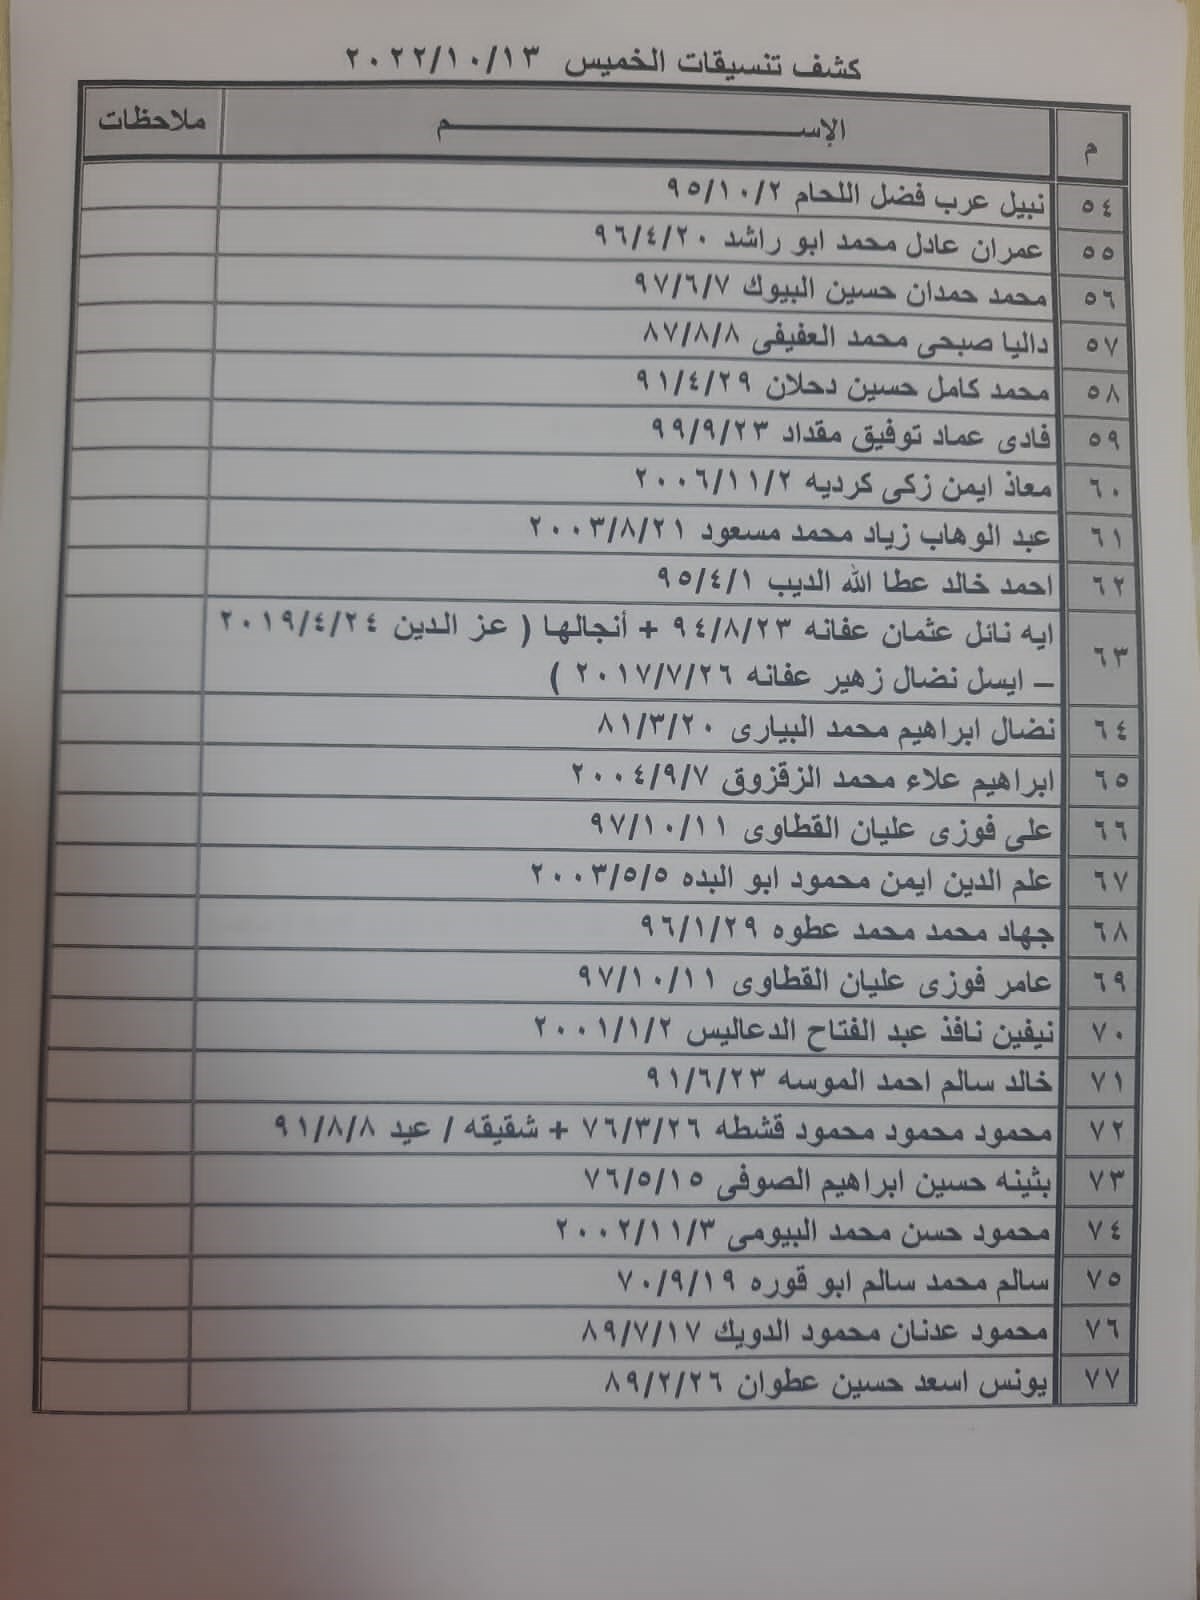 كشف تنسيقات الخميس ٢٠٢٢/١٠/١٣
م الإســـــــــم ملاحظات
٥٤ نبيل عرب فضل اللحام ٩٥/١٠/٢
٥٥ عمران عادل محمد ابو راشد ٩٦/٤/٢٠
٥٦ محمد حمدان حسين البيوك ٩٧/٦/٧
٥٧ داليا صبحى محمد العفيفى ٨٧/٨/٨
٥٨ محمد كامل حسين دحلان ٩١/٤/٢٩
٥٩ فادى عماد توفيق مقداد ٩٩/٩/٢٣
٦٠ معاذ ايمن زكى كرديه ٢٠٠٦/١١/٢
٦١ عبد الوهاب زياد محمد مسعود ٢٠٠٣/٨/٢١
٦٢ احمد خالد عطا الله الديب ٩٥/٤/١
٦٣ ايه نائل عثمان عفانه ٩٤/٨/٢٣ + أنجالها ( عز الدين ٢٠١٩/٤/٢٤
– ايسل نضال زهير عفانه ٢٠١٧/٧/٢٦ )
٦٤ نضال ابراهيم محمد البيارى ٨١/٣/٢٠
٦٥ ابراهيم علاء محمد الزقزوق ٢٠٠٤/٩/٧
٦٦ على فوزى عليان القطاوى ٩٧/١٠/١١
٦٧ علم الدين ايمن محمود ابو البده ٢٠٠٣/٥/٥
٦٨ جهاد محمد محمد عطوه ٩٦/١/٢٩
٦٩ عامر فوزى عليان القطاوى ٩٧/١٠/١١
٧٠ نيفين نافذ عبد الفتاح الدعاليس ٢٠٠١/١/٢
٧١ خالد سالم احمد الموسه ٩١/٦/٢٣
٧٢ محمود محمود محمود قشطه ٧٦/٣/٢٦ + شقيقه / عيد ٩١/٨/٨
٧٣ بثينه حسين ابراهيم الصوفى ٧٦/٥/١٥
٧٤ محمود حسن محمد البيومى ٢٠٠٢/١١/٣
٧٥ سالم محمد سالم ابو قوره ٧٠/٩/١٩
٧٦ محمود عدنان محمود الدويك ٨٩/٧/١٧
٧٧ يونس اسعد حسين عطوان ٨٩/٢/٢٦